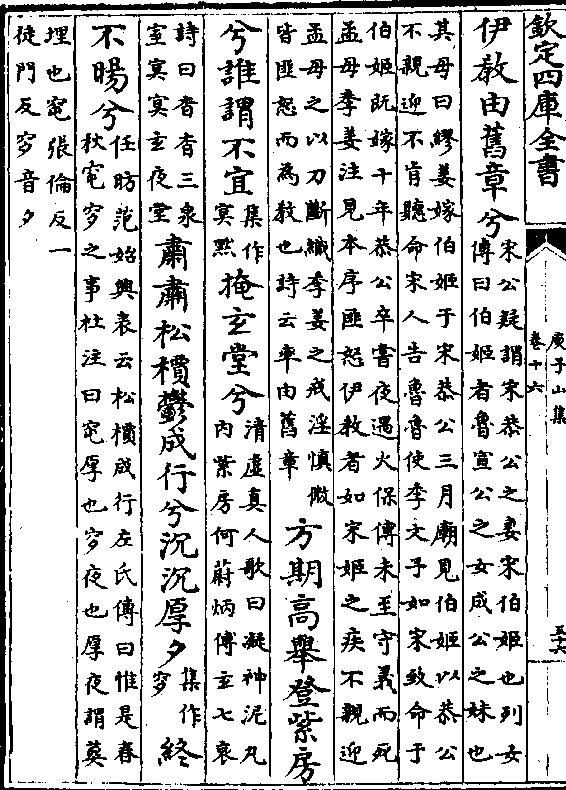 欽定四庫全書
庾子山集
卷十六
五十六
伊教由舊章兮
宋公疑謂宋恭公之妻宋伯姬也列女
傳曰伯姬者魯宣公之女成公之妹也
其母曰繆姜嫁伯姬于宋恭公三月廟見伯姬以恭公
不親迎不肯聽命宋人告魯魯使季文子如宋致命于
伯姬既嫁十年恭公卒嘗夜遇火保傅未至守義而死
孟母季姜注見本序匪怒伊教者如宋姬之疾不親迎
孟母之以刀斷織季姜之戒淫慎微
皆匪怒而為教也詩云率由舊章
方期高舉登紫房
兮誰謂不宜
集作
冥然
掩玄堂兮
清虚真人歌曰凝神泥丸
内紫房何蔚炳傅玄七哀
詩曰杳杳三泉
室冥冥玄夜堂
肅肅松檟鬱成行兮沉沉厚夕
集作
穸
終
不晹兮
任昉范始興表云松檟成行左氏傳曰惟是春
秋窀穸之事杜注曰窀厚也穸夜也厚夜謂葬
埋也窀張倫反一
徒門反穸音夕